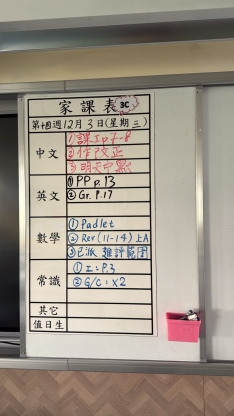 家課表 3C
第十四週12月3日(星期三)
中文
①課工p7-8
②作改正
③明天中默
英文
① PP p.13
② Gr. P.17
數學
① Padlet
② Rev (11-14) 上A
③已派 進評範圍
常識
① 工:P.3
② G/C:x2
其它
值日生